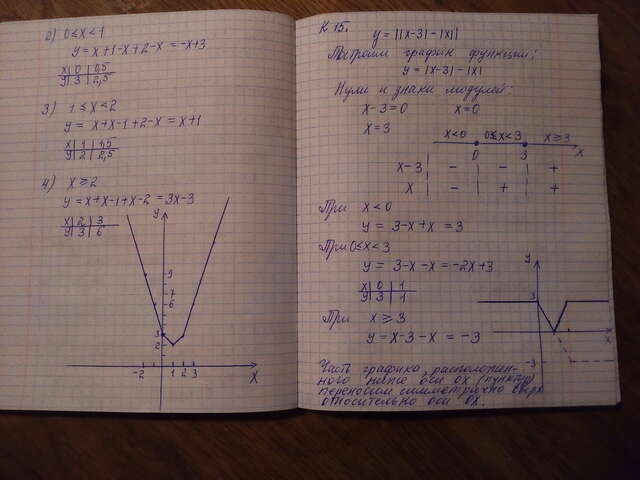 2) 0≤x<1
y = x+1-x+2-x = -x+3
x | 0 | 0,5
y | 3 | 2,5
3) 1≤x<2
y = x+x-1+2-x = x+1
x | 1 | 1,5
y | 2 | 2,5
4) x≥2
y = x+x-1+x-2 = 3x-3
x | 2 | 3
y | 3 | 6
y
9
7
6
3
2
-2 1 2 3
x
К 15. y = ||x-3|-|x||
Построим график функции:
y = |x-3|-|x|
Нули и знаки модулей:
x-3=0 x=0
x=3
x<0 0≤x<3 x≥3
0 3 x
x-3 - - +
x - + +
При x<0
y = 3-x+x = 3
При 0≤x<3
y = 3-x-x = -2x+3
x | 0 | 1
y | 3 | 1
При x≥3
y = x-3-x = -3
y
3
x
-3
Часть графика, расположен-
ного ниже оси ox (пунктир)
переносим симметрично вверх
относительно оси ox.